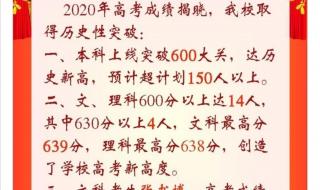 2020年高考成绩揭晓，我校取
得历史性突破：
一、本科上线突破600大关，达历
史新高，预计超计划150人以上。
二、文、理科600分以上达14人，
其中630分以上4人，文科最高分
639分，理科最高分638分，创造
了学校高考新高度。